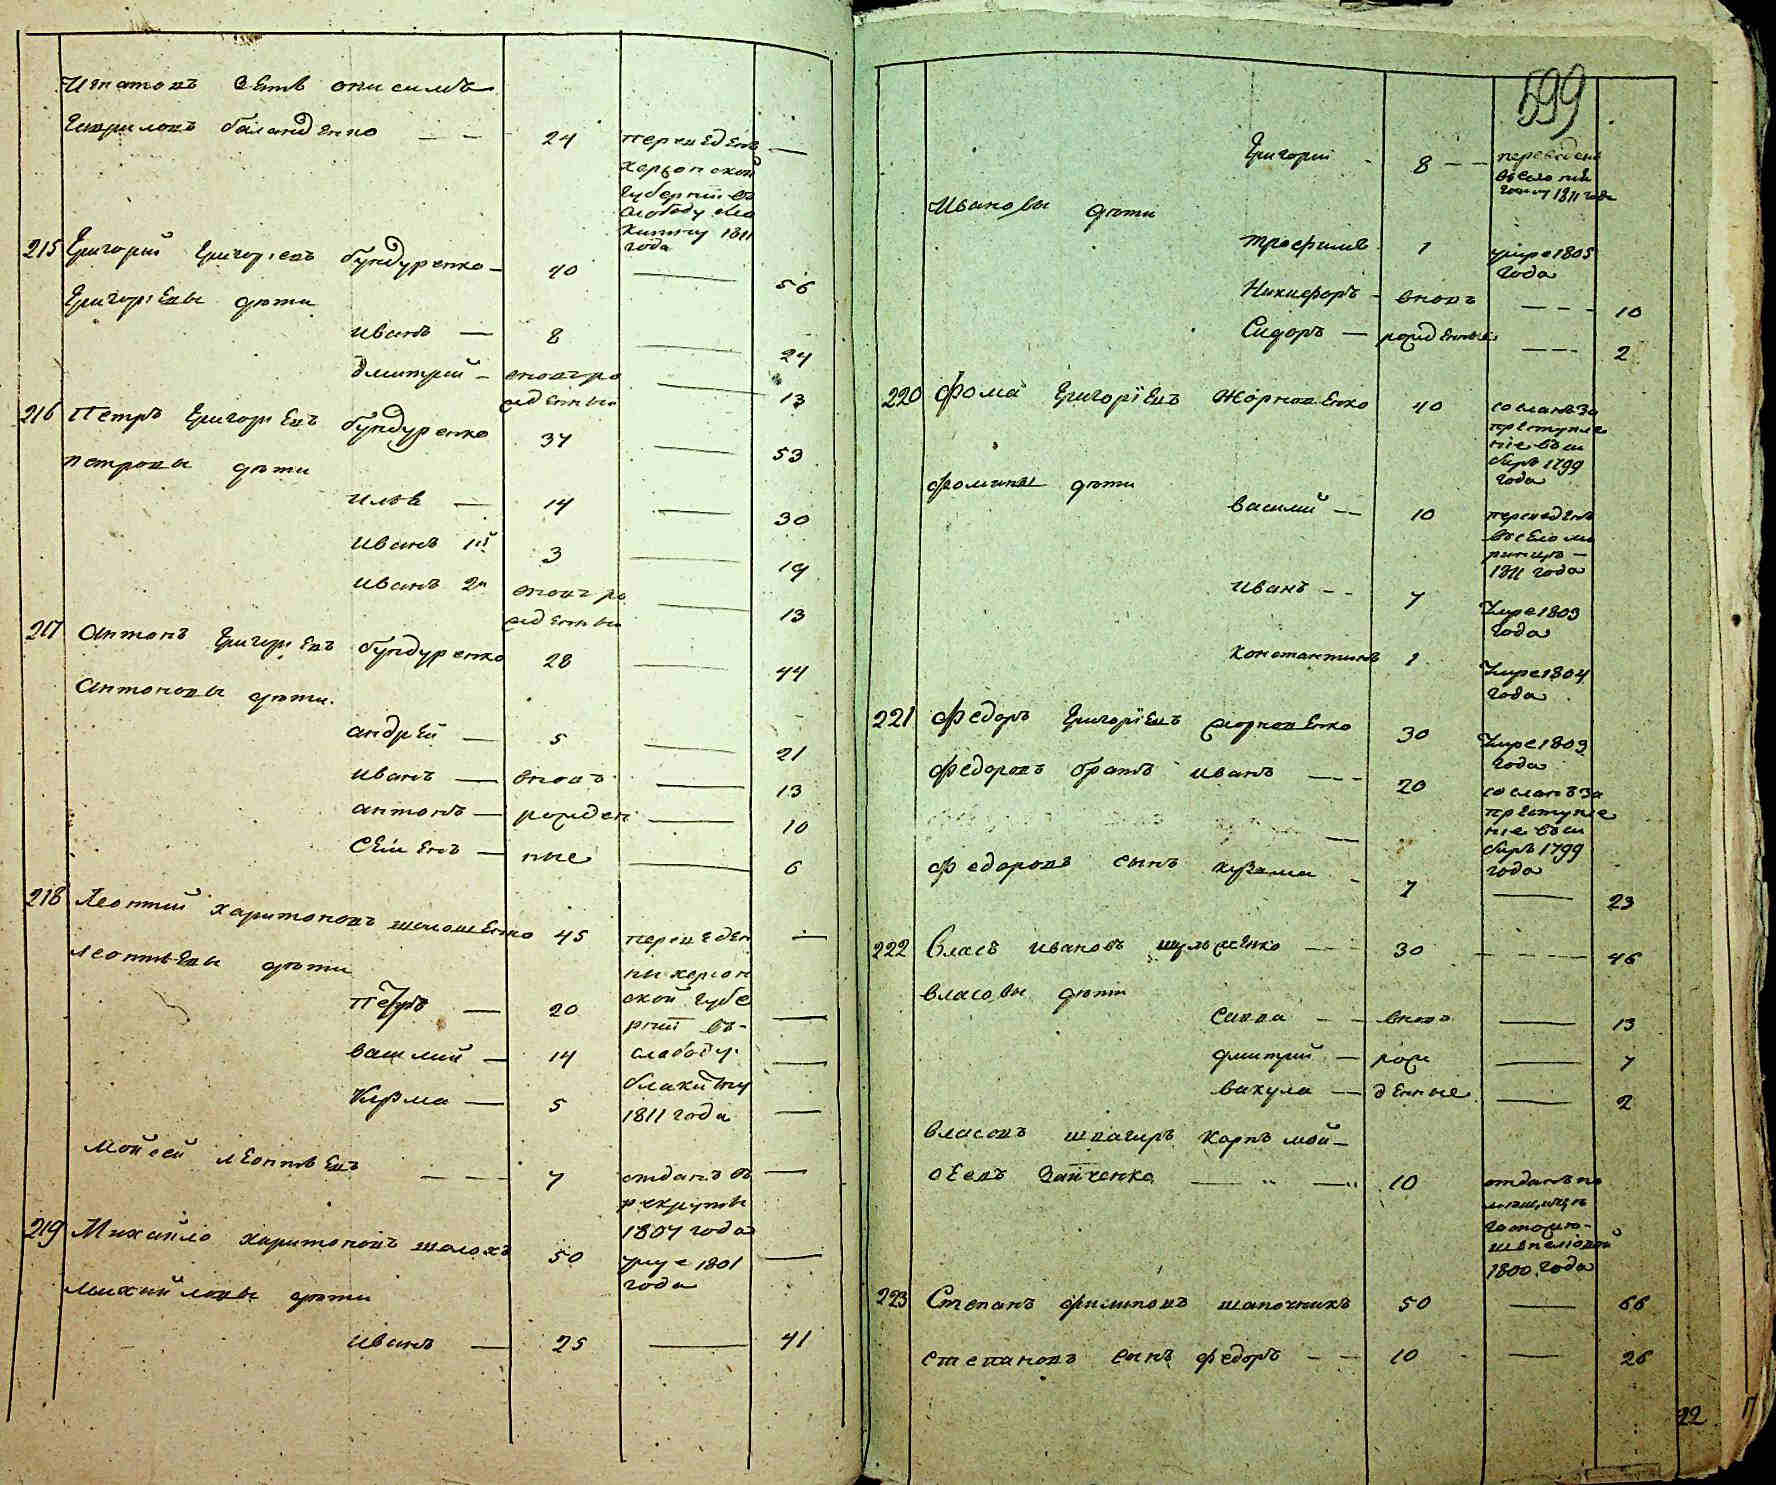 Игнатовъ зять онисимъ
Гавриловъ баланденко — — 24 переведенъ —
херсонской
губернiи въ
слободу
1811
года
215 Григорий Григориевъ бундуренко — 40 — 56
Григориевы дѣти
иванъ — 8 — 24
дмитрий — вновъ ро
жденный — 13
216 Петръ Григориевъ бундуренко 37 — 53
петровы дѣти
илья — 14 — 30
иванъ 1й 3 — 19
иванъ 2й вновъ ро
жденный — 13
217 Антонъ Григориевъ бундуренко 28 — 44
Антоновы дѣти.
андрей — 5 — 21
иванъ — вновъ — 13
антонъ — рожден — 10
Семенъ — ные — 6
218 Леонтий харитоновъ 45 переведен —
леонтьевы дѣти ны херсон
петръ — 20 ской губе
рнии въ — —
василий — 14 слободу —
Кузма — 5 1811 года —
Мойсей леонтьевъ — — — 7 отданъ въ —
рекруты
1807 года
219 Михайло харитоновъ 50 умре 1801 —
года
михайловы дѣти
иванъ — 25 — 41
599
Григорий - 8 — переведенъ
1811 года
Ивановы дѣти
трофимъ 1 умре 1805
года
Никифоръ - вновъ — — — 10
Сидоръ — рожденные — — 2
220 Фома Григорiевъ жорновенко 40 сосланъ за
преступле
нiе въ си
биръ 1799
года
фомины дѣти
василий — 10 переведенъ
въ село
1811 года
иванъ — 7 умре 1803
года
константинъ 1 умре 1804
года
221 Федоръ Григорiевъ жорновенко 30 умре 1803
года
Федоровъ братъ иванъ — — — 20 сосланъ за
преступле
нiе въ си
биръ 1799
года
федоровъ сынъ кузма — 7 — 23
222 Власъ ивановъ шульженко — — 30 — — — 46
власовы дѣти
савва — — вновъ — 13
дмитрий — рож — 7
вакула — денные — 2
власовъ швагиръ Карпъ мой—
сеевъ Зайченко — „ — „ 10 отданъ по
1800 года
223 Степанъ филиповъ шапочникъ 50 — 66
степановъ сынъ федоръ — — 10 — 26
22
17